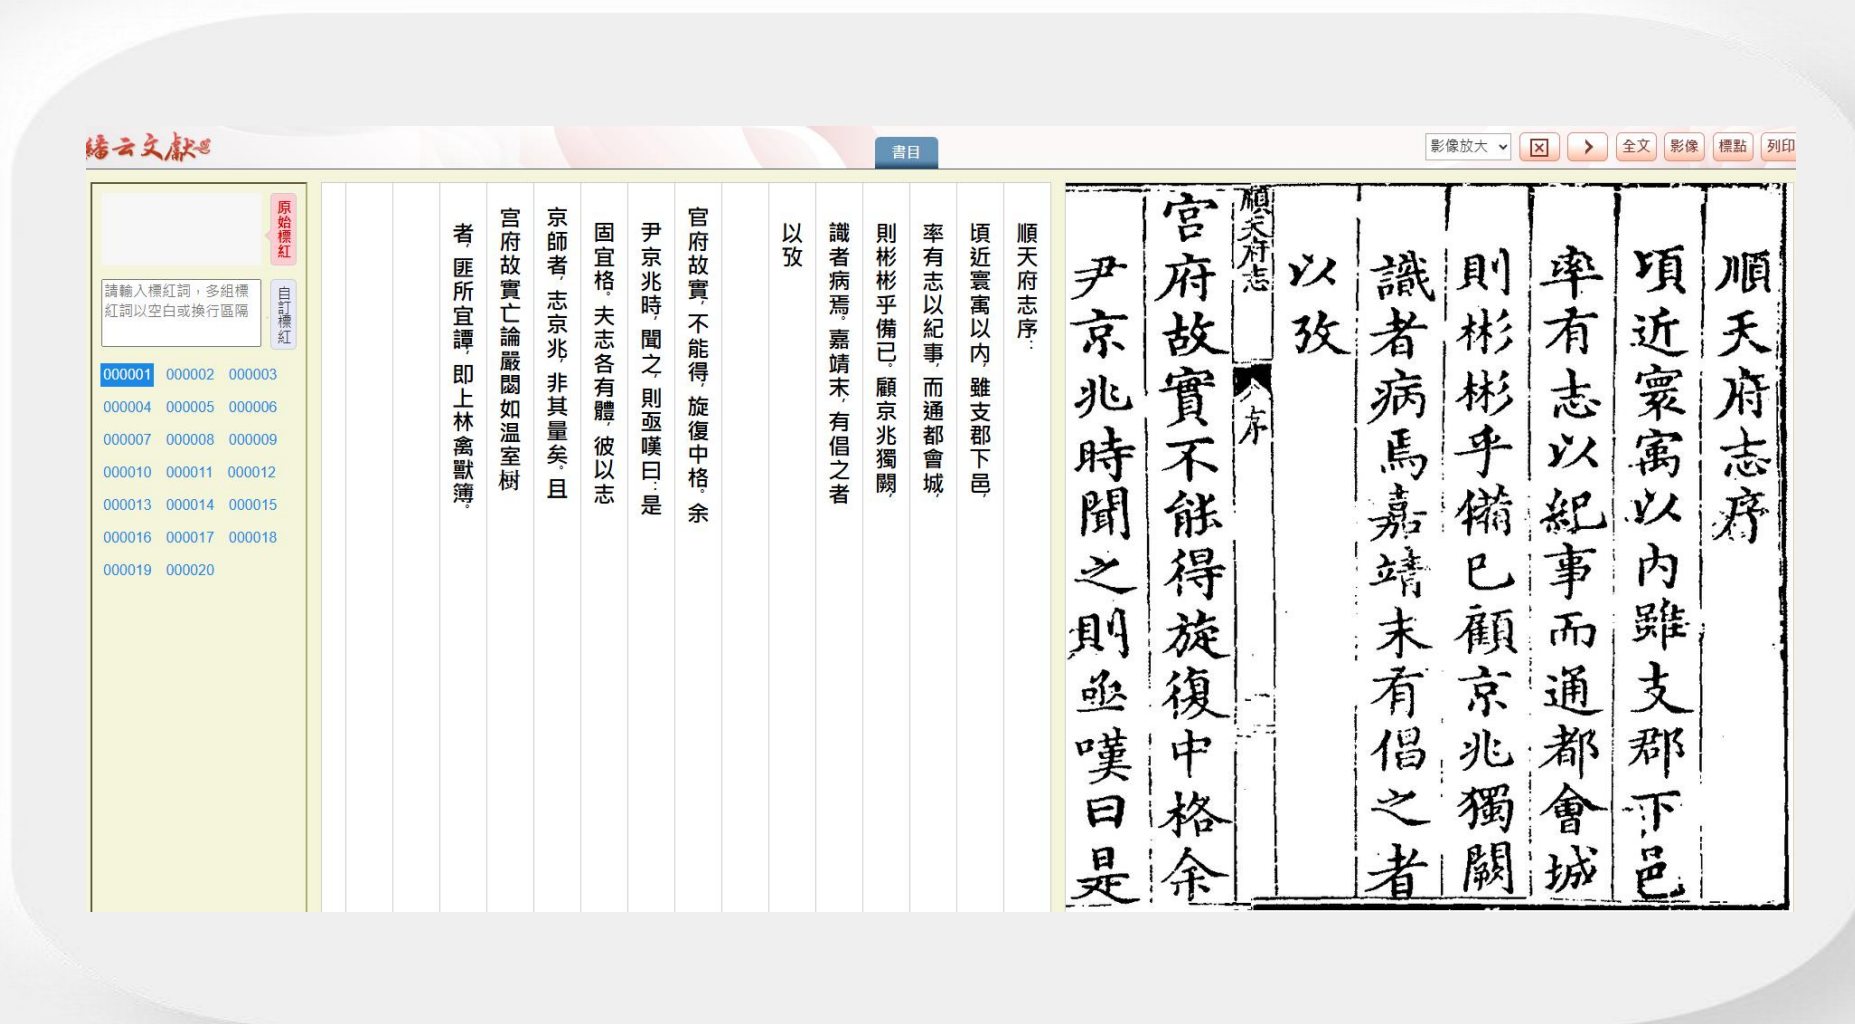 繙云文獻
書目
影像放大
全文
影像
標點
列印
原始標紅
請輸入標紅詞，多組標
紅詞以空白或換行區隔
自訂標紅
000001 000002 000003
000004 000005 000006
000007 000008 000009
000010 000011 000012
000013 000014 000015
000016 000017 000018
000019 000020
順天府志序：
頃近寰寓以内，雖支郡下邑，
率有志以紀事，而通都會城，
則彬彬乎備已。顧京兆獨闕，
識者病焉。嘉靖末，有倡之者
以攷
官府故實，不能得，旋復中格。余
尹京兆時，聞之，則亟嘆曰：是
固宜格。夫志各有體，彼以志
京師者，志京兆，非其量矣。且
宫府故實亡論嚴閟如温室树
者，匪所宜譚，即上林禽獸簿。
順天府志序
頃近寰寓以内雖支郡下邑
率有志以紀事而通都會城
則彬彬乎備已顧京兆獨闕
識者病焉嘉靖末有倡之者
以攷
順天府志
序
宫府故實不能得旋復中格余
尹京兆時聞之則亟嘆曰是